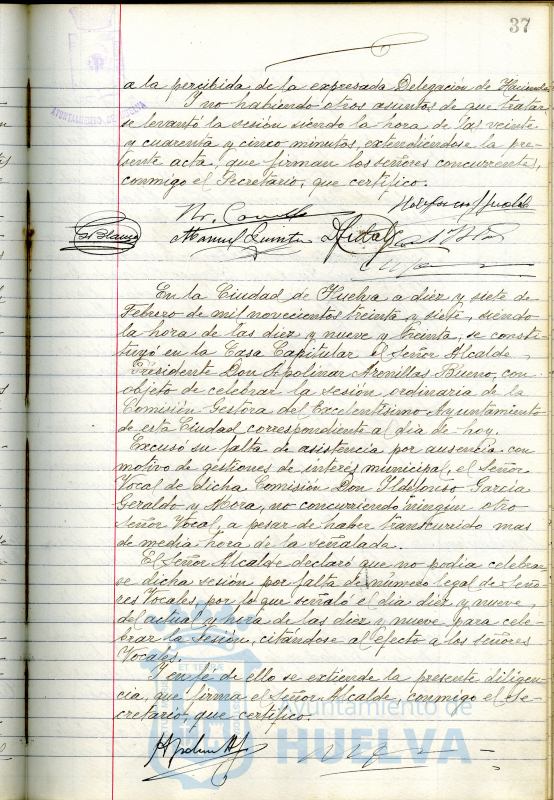 37
a la percibida de la expresada Delegación de Hacienda
Y no habiendo otros asuntos de que tratar
se levantó la sesión siendo la hora de las veinte
y cuarenta y cinco minutos, extendiéndose la pre-
sente acta que firman los señores concurrentes,
conmigo el Secretario, que certifico.
Manuel Quintero
En la Ciudad de Huelva a diez y siete de
Febrero de mil novecientos treinta y siete, siendo
la hora de las diez y nueve y treinta, se consti-
tuyó en la Casa Capitular el Señor Alcalde
Presidente Don Apolinar Arenillas Bueno, con
objeto de celebrar la sesión ordinaria de la
Comisión Gestora del Excelentísimo Ayuntamiento
de esta Ciudad correspondiente al día de hoy.
Excusó su falta de asistencia por ausencia con
motivo de gestiones de interés municipal, el Señor
Vocal de dicha Comisión Don Ildefonso García
Geraldo y Mora, no concurriendo ningun otro
Señor Vocal, a pesar de haber transcurrido mas
de media hora de la señalada.
El Señor Alcalde declaró que no podia celebrar-
se dicha sesión por falta de número legal de Seño-
res Vocales, por lo que señaló el dia diez y nueve
del actual y hora de las diez y nueve para cele-
brar la sesión, citándose al efecto a los señores
Vocales.
Y en fé de ello se extiende la presente diligen-
cia, que firma el Señor Alcalde, conmigo el Se-
cretario, que certifico.
Ayuntamiento de
HUELVA